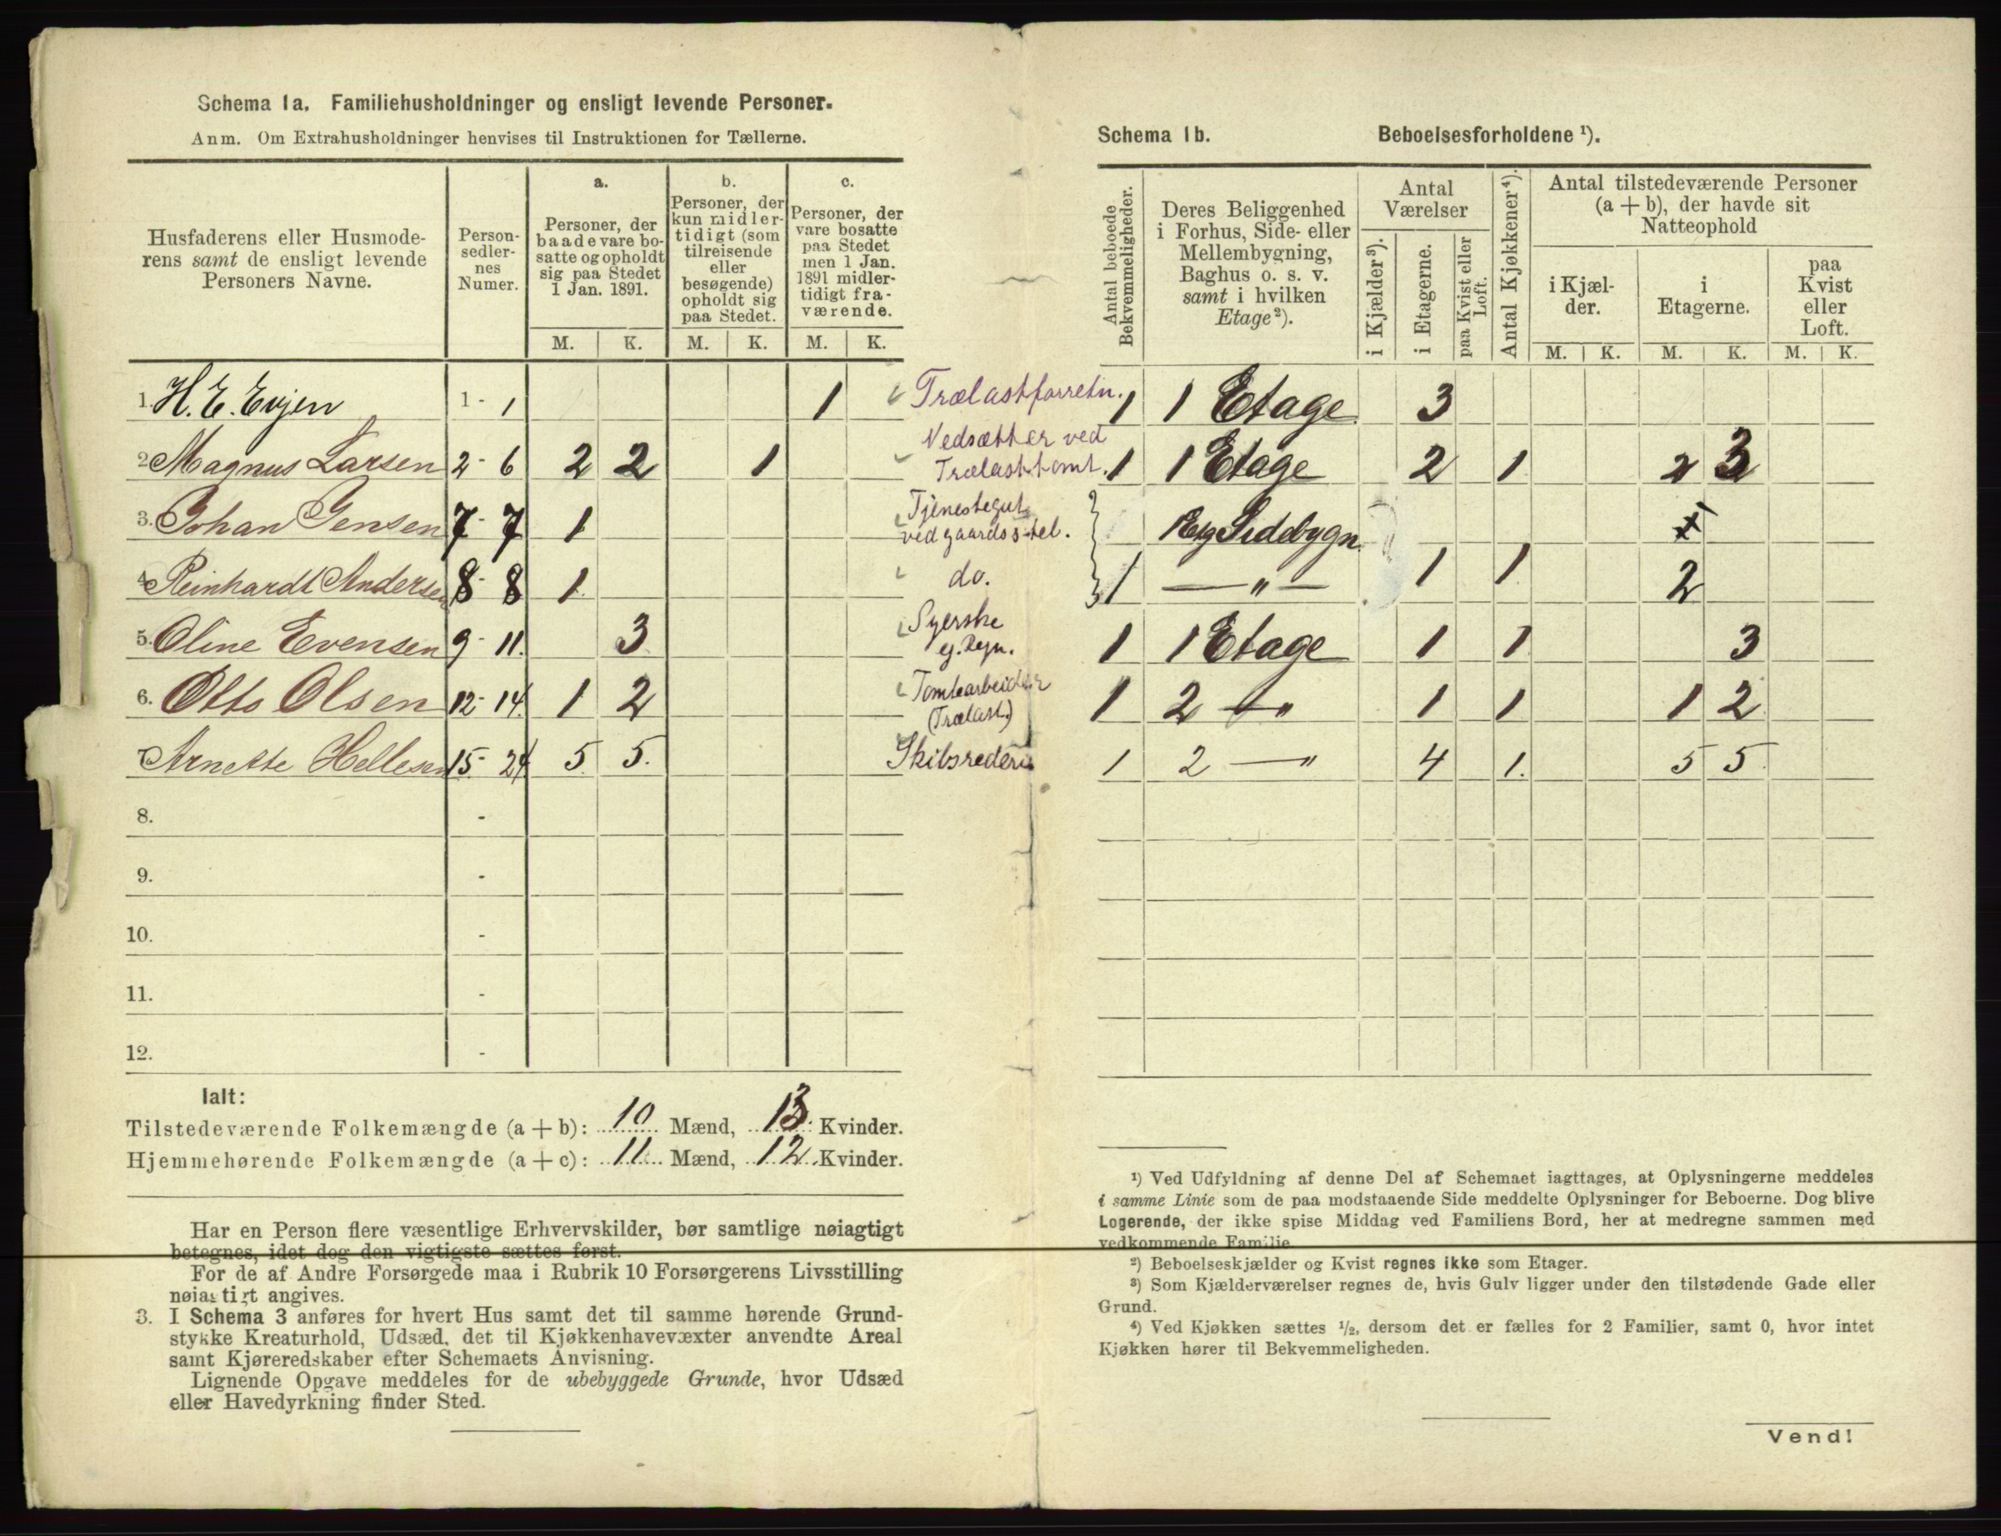 Schema 1a. Familiehusholdninger og ensligt levende Personer.
Anm. Om Extrahusholdninger henvises til Instruktionen for Tællerne.
Husfaderens eller Husmode-
rens samt de ensligt levende
Personers Navne.
Person-
sedler-
nes
Numer.
a.
Personer, der
baade vare bo-
satte og opholdt
sig paa Stedet
1 Jan. 1891.
b.
Personer, der
kun midler-
tidigt (som
tilreisende
eller
besøgende)
opholdt sig
paa Stedet.
c.
Personer, der
vare bosatte
paa Stedet
men 1 Jan.
1891 midler-
tidigt fra-
værende.
M. K. M. K. M. K.
1. H. E. Evjen 1 - 1 1 Trælastforretn.
2. Magnus Larsen 2 - 6 2 2 1 Vedsætter ved
Trælasttomt.
3. Johan Jensen 7 - 7 1 Tjenestegut
ved gaardsstel.
4. Reinhardt Andersen 8 - 8 1 do.
5. Oline Evensen 9 - 11. 3 Syerske
e. Regn.
6. Otto Olsen 12 - 14. 1 2 Tomtearbeider
(Trælast.)
7. Arnette Hellesen 15 - 24 5 5. Skibsrederi
8. -
9. -
10. -
11. -
12. -
Ialt:
Tilstedeværende Folkemængde (a + b): 10 Mænd, 13 Kvinder.
Hjemmehørende Folkemængde (a + c): 11 Mænd, 12 Kvinder.
Har en Person flere væsentlige Erhvervskilder, bør samtlige nøiagtigt
betegnes, idet dog den vigtigste sættes først.
For de af Andre Forsørgede maa i Rubrik 10 Forsørgerens Livsstilling
nøiagtigt angives.
3. I Schema 3 anføres for hvert Hus samt det til samme hørende Grund-
stykke Kreaturhold, Udsæd, det til Kjøkkenhavevæxter anvendte Areal
samt Kjøreredskaber efter Schemaets Anvisning.
Lignende Opgave meddeles for de ubebyggede Grunde, hvor Udsæd
eller Havedyrkning finder Sted.
Schema 1b. Beboelsesforholdene ¹).
Antal beboede
Bekvemmeligheder.
Deres Beliggenhed
i Forhus, Side- eller
Mellembygning,
Baghus o. s. v.
samt i hvilken
Etage ²).
Antal
Værelser
i Kjælder ³).
i Etagerne.
paa Kvist eller
Loft.
Antal Kjøkkener ⁴).
Antal tilstedeværende Personer
(a + b), der havde sit
Natteophold
i Kjæl-
der.
i
Etagerne.
paa
Kvist
eller
Loft.
M. K. M. K. M. K.
1 1 Etage 3
1 1 Etage 2 1 2 3
1 Etg Sidebygn
1 — " — 1 1 2
1 1 Etage 1 1 3
1 2 — " 1 1 1 2
1 2 — " 4 1. 5 5
¹) Ved Udfyldning af denne Del af Schemaet iagttages, at Oplysningerne meddeles
i samme Linie som de paa modstaaende Side meddelte Oplysninger for Beboerne. Dog blive
Logerende, der ikke spise Middag ved Familiens Bord, her at medregne sammen med
vedkommende Familie.
²) Beboelseskjælder og Kvist regnes ikke som Etager.
³) Som Kjælderværelser regnes de, hvis Gulv ligger under den tilstødende Gade eller
Grund.
⁴) Ved Kjøkken sættes ½, dersom det er fælles for 2 Familier, samt 0, hvor intet
Kjøkken hører til Bekvemmeligheden.
Vend!